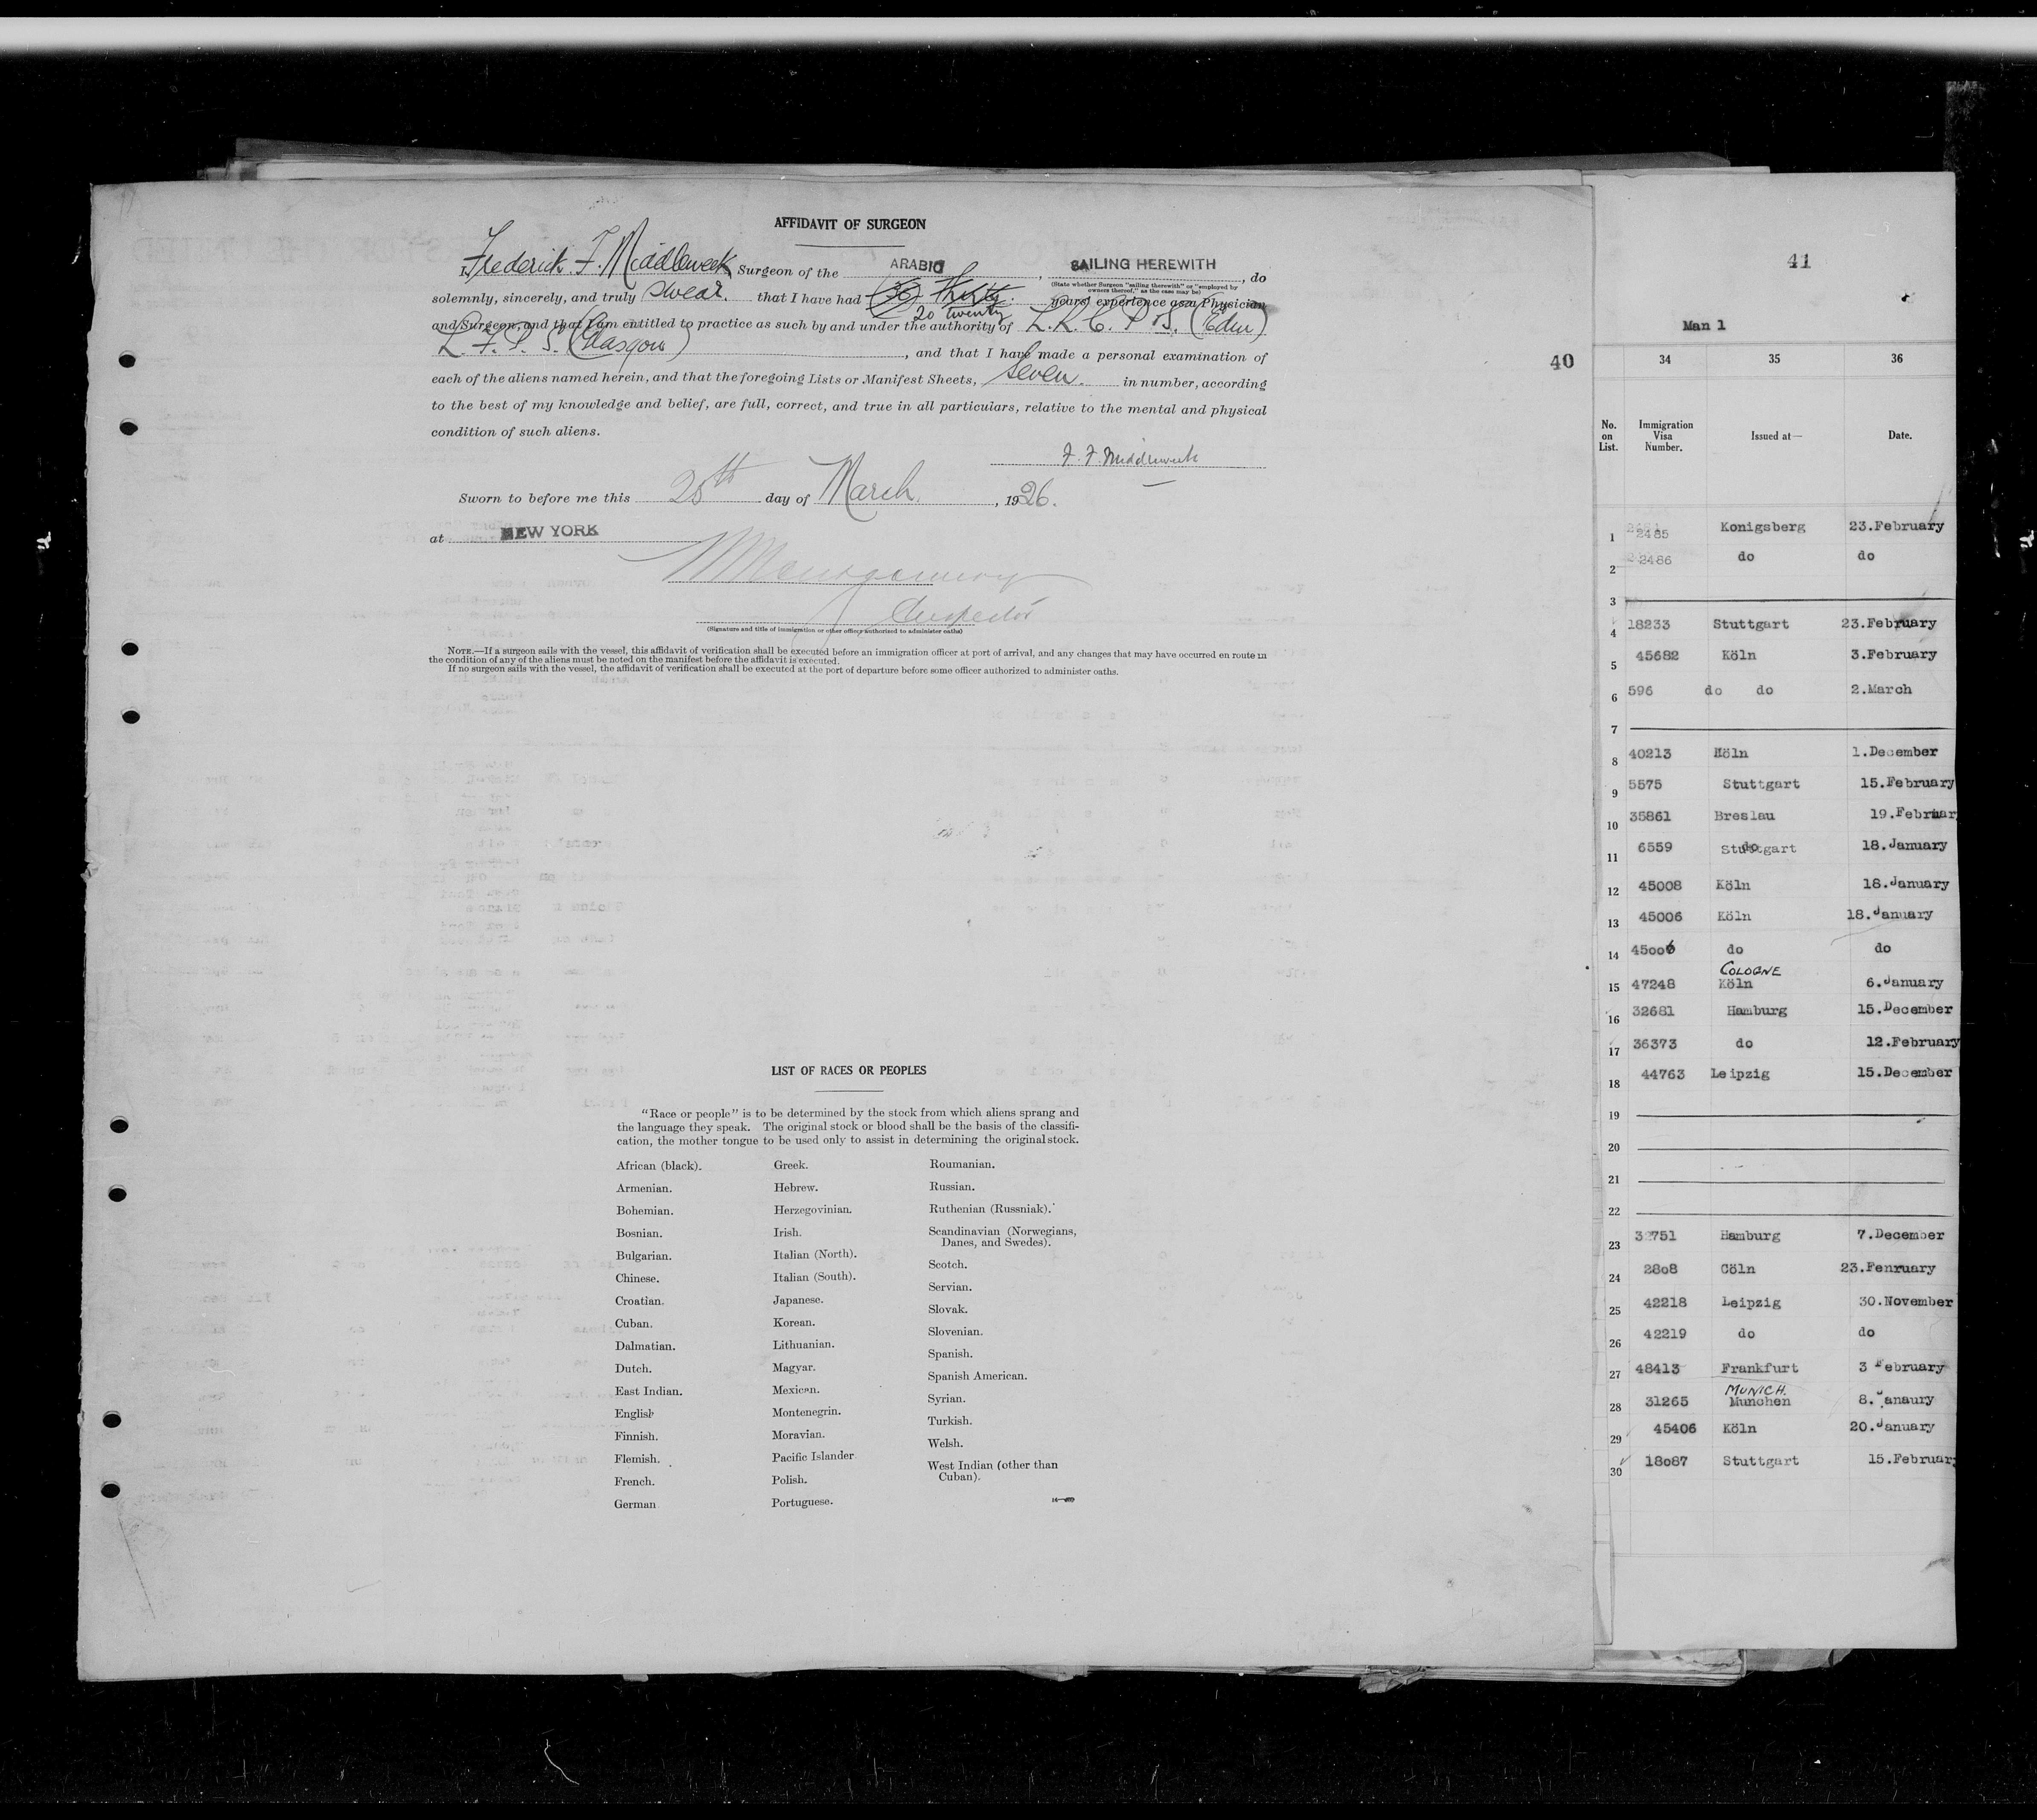 AFFIDAVIT OF SURGEON
I, Frederick F. Middleweek Surgeon of the ARABIC, SAILING HEREWITH, do
(State whether Surgeon "sailing therewith" or "employed by owners thereof," as the case may be)
solemnly, sincerely, and truly swear. that I have had (30) Thirty. years' experience as a Physician
20 twenty
and Surgeon, and that I am entitled to practice as such by and under the authority of L.R.C.P. & S. (Edin)
L.F.P.S. (Glasgow), and that I have made a personal examination of
each of the aliens named herein, and that the foregoing Lists or Manifest Sheets, seven. in number, according
to the best of my knowledge and belief, are full, correct, and true in all particulars, relative to the mental and physical
condition of such aliens.
F. F. Middleweek
Sworn to before me this 25th day of March, 1926.
at NEW YORK
Montgomery
Inspector
(Signature and title of immigration or other officer authorized to administer oaths)
NOTE.—If a surgeon sails with the vessel, this affidavit of verification shall be executed before an immigration officer at port of arrival, and any changes that may have occurred en route in
the condition of any of the aliens must be noted on the manifest before the affidavit is executed.
If no surgeon sails with the vessel, the affidavit of verification shall be executed at the port of departure before some officer authorized to administer oaths.
LIST OF RACES OR PEOPLES
"Race or people" is to be determined by the stock from which aliens sprang and
the language they speak. The original stock or blood shall be the basis of the classifi-
cation, the mother tongue to be used only to assist in determining the original stock.
African (black).
Armenian.
Bohemian.
Bosnian.
Bulgarian.
Chinese.
Croatian.
Cuban.
Dalmatian.
Dutch.
East Indian.
English
Finnish.
Flemish.
French.
German
Greek.
Hebrew.
Herzegovinian.
Irish.
Italian (North).
Italian (South).
Japanese.
Korean.
Lithuanian.
Magyar.
Mexican.
Montenegrin.
Moravian.
Pacific Islander
Polish.
Portuguese.
Roumanian.
Russian.
Ruthenian (Russniak).
Scandinavian (Norwegians,
Danes, and Swedes).
Scotch.
Servian.
Slovak.
Slovenian.
Spanish.
Spanish American.
Syrian.
Turkish.
Welsh.
West Indian (other than
Cuban).
40
41
Man 1
34 35 36
No. on List. Immigration Visa Number. Issued at— Date.
1 2485 Konigsberg 23.February
2 2486 do do
3
4 18233 Stuttgart 23.February
5 45682 Köln 3.February
6 596 do do 2.March
7
8 40213 Köln 1.December
9 5575 Stuttgart 15.February
10 35861 Breslau 19.Februar
11 6559 Stuttgart 18.January
12 45008 Köln 18.January
13 45006 Köln 18.January
14 45006 do do
COLOGNE
15 47248 Köln 6.January
16 32681 Hamburg 15.December
17 36373 do 12.February
18 44763 Leipzig 15.December
19
20
21
22
23 32751 Hamburg 7.December
24 2808 Cöln 23.Fenruary
25 42218 Leipzig 30.November
26 42219 do do
27 48413 Frankfurt 3 February
MUNICH.
28 31265 Munchen 8.Janaury
29 45406 Köln 20.January
30 18087 Stuttgart 15.Februar